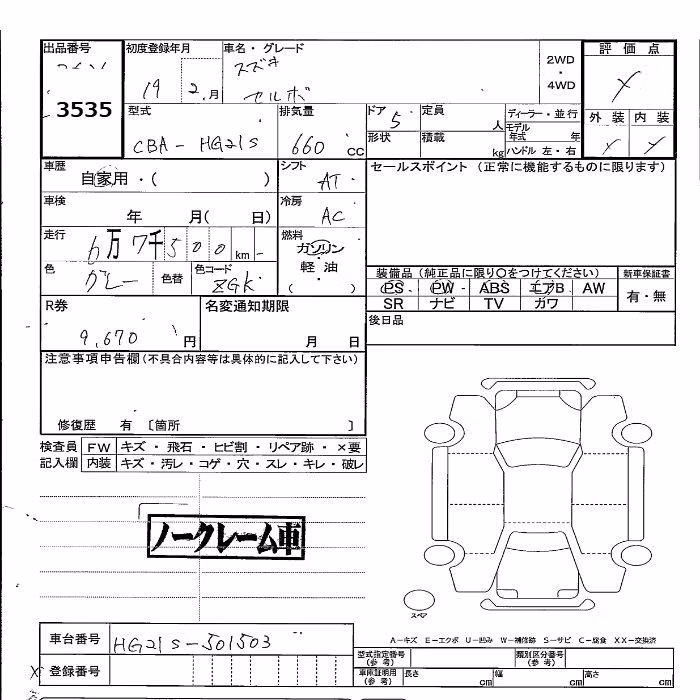 出品番号
3535
初度登録年月
19 2.月
車名・グレード
スズキ
セルボ
2WD
・
4WD
評価点
外装 内装
型式
CBA - HG21S
排気量
660 cc
ドア 5
形状
定員 人
積載 kg
ディーラー・並行
モデル年式 年
ハンドル 左・右
車歴
自家用・( )
シフト
AT
車検
年 月( 日)
冷房
AC
走行
6万7千500km
燃料
ガソリン
軽油
・
( )
色
グレー
色替
色コード
ZGK
セールスポイント (正常に機能するものに限ります)
装備品 (純正品に限り〇をつけてください)
PS・PW・ABS・エアB・AW
SR ナビ TV ガワ
新車保証書
有・無
R券
9,670円
名変通知期限
月 日
後日品
注意事項申告欄(不具合内容等は具体的に記入して下さい)
修復歴 有 〔箇所 〕
検査員記入欄
FW キズ・飛石・ヒビ割・リペア跡・×要
内装 キズ・汚レ・コゲ・穴・スレ・キレ・破レ
ノークレーム車
スペア
A-キズ E-エクボ U-凹み W-補修跡 S-サビ C-腐食 XX-交換済
車台番号 HG21S-501503
登録番号
型式指定番号(参考)
類別区分番号(参考)
車庫証明用(参考)
長さ cm 幅 cm 高さ cm